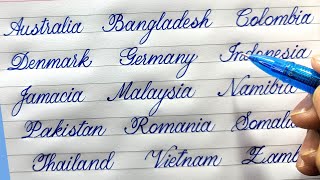 Australia Bangladesh Colombia
Denmark Germany Indonesia
Jamacia Malaysia Namibia
Pakistan Romania Somalia
Thailand Vietnam Zamb